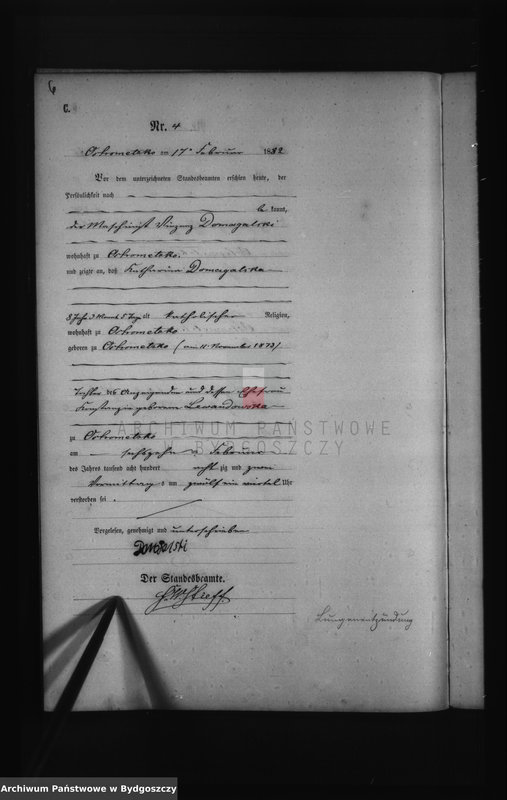 6
C.
Nr. 4
Ostrometzko am 17. Februar 1882
Vor dem unterzeichneten Standesbeamten erschien heute, der
Persönlichkeit nach
be kannt,
der Maschinist Vinzenz Domagalski
wohnhaft zu Ostrometzko,
und zeigte an, daß Katharina Domagalska
8 Jahr 3 Monat 5 Tage alt katholischer Religion,
wohnhaft zu Ostrometzko
geboren zu Ostrometzko (am 11. November 1873)
Tochter des Anzeigenden und dessen Ehefrau
Konstanzia geborenen Lewandowska
zu Ostrometzko
am sechszehn ten Februar
des Jahres tausend acht hundert acht zig und zwei
Vormittags um zwölf ein viertel Uhr
verstorben sei .
Vorgelesen, genehmigt und unterschrieben
Der Standesbeamte.
Lungenentzündung
ARCHIWUM PAŃSTWOWE
W BYDGOSZCZY
Archiwum Państwowe w Bydgoszczy